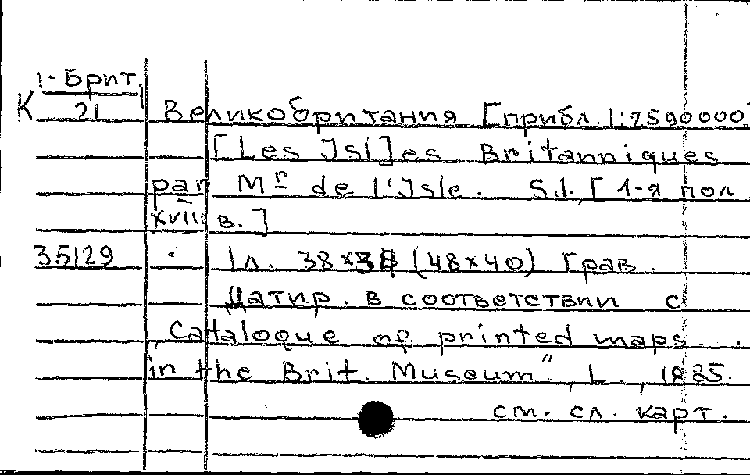 1-Брит.
К 21 Великобритания [прибл. 1:2590000]
[Les Isl]es Britanniques
par Mr de l'Isle. S.l. [1-я пол
XVIII в.]
35129 1л. 38×38 (48×40) Грав.
Датир. в соответствии с
„Catalogue of printed maps
in the Brit. Museum", L., 1885.
см. сл. карт.